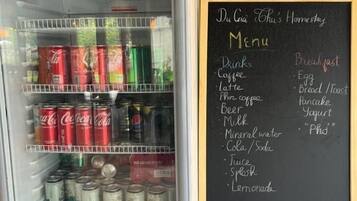 Coca-Cola
Coca-Cola
Coca-Cola
Du Gia Thu's Homestay
Menu
Drinks
Coffee
Latte
Phin coffee
Beer
Milk
Mineral water
Cola / Soda
Juice
Splash
Lemonada
Breakfast
Egg
Bread / Toast
Pancake
Yogurt
"Phở"